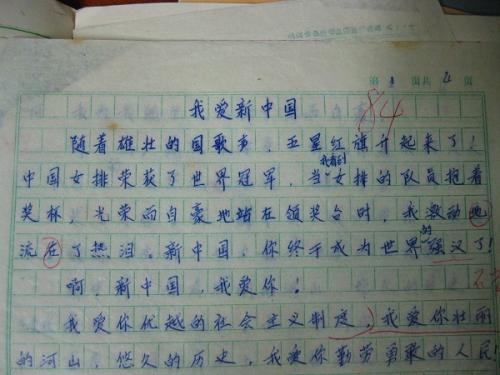 第 1 页共 4 页
我爱新中国
84
随着雄壮的国歌声，五星红旗升起来了！
中国女排荣获了世界冠军，当我看到女排的队员抱着
奖杯，光荣而自豪地站在领奖台时，我激动地
流在了热泪。新中国，你终于成为世界的强汉了！
啊，新中国，我爱你！
我爱你优越的社会主义制度，我爱你壮丽
的河山，悠久的历史，我爱你勤劳勇敢的人民！